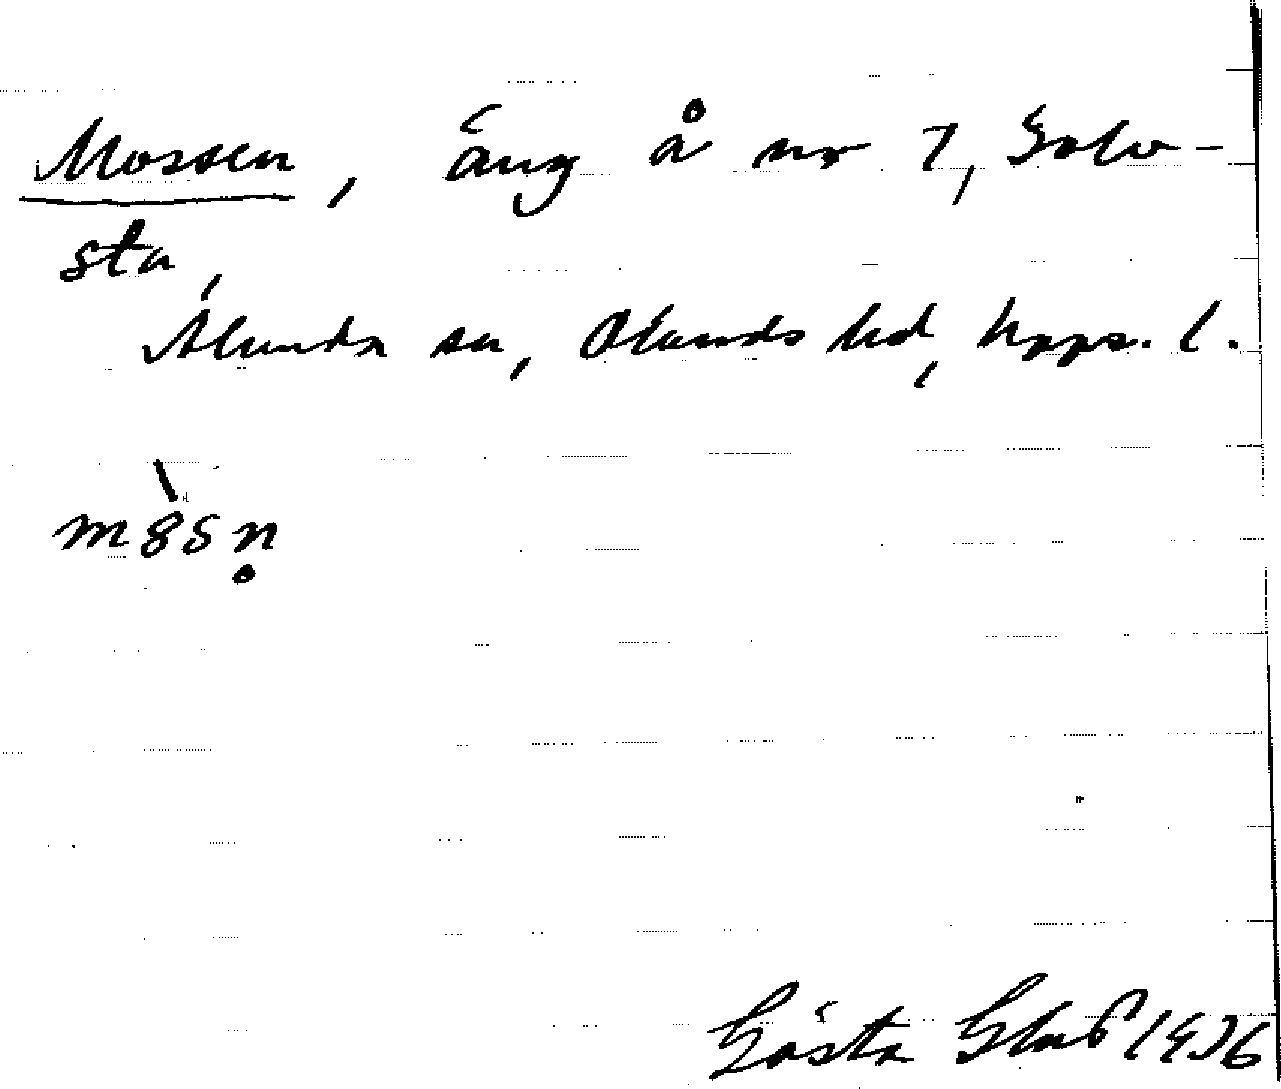 Mossen, äng å nr 7, Golv-
sta,
Alunda sn, Olands hd, Upps. l.
m8̀sn̥
Gösta 1936